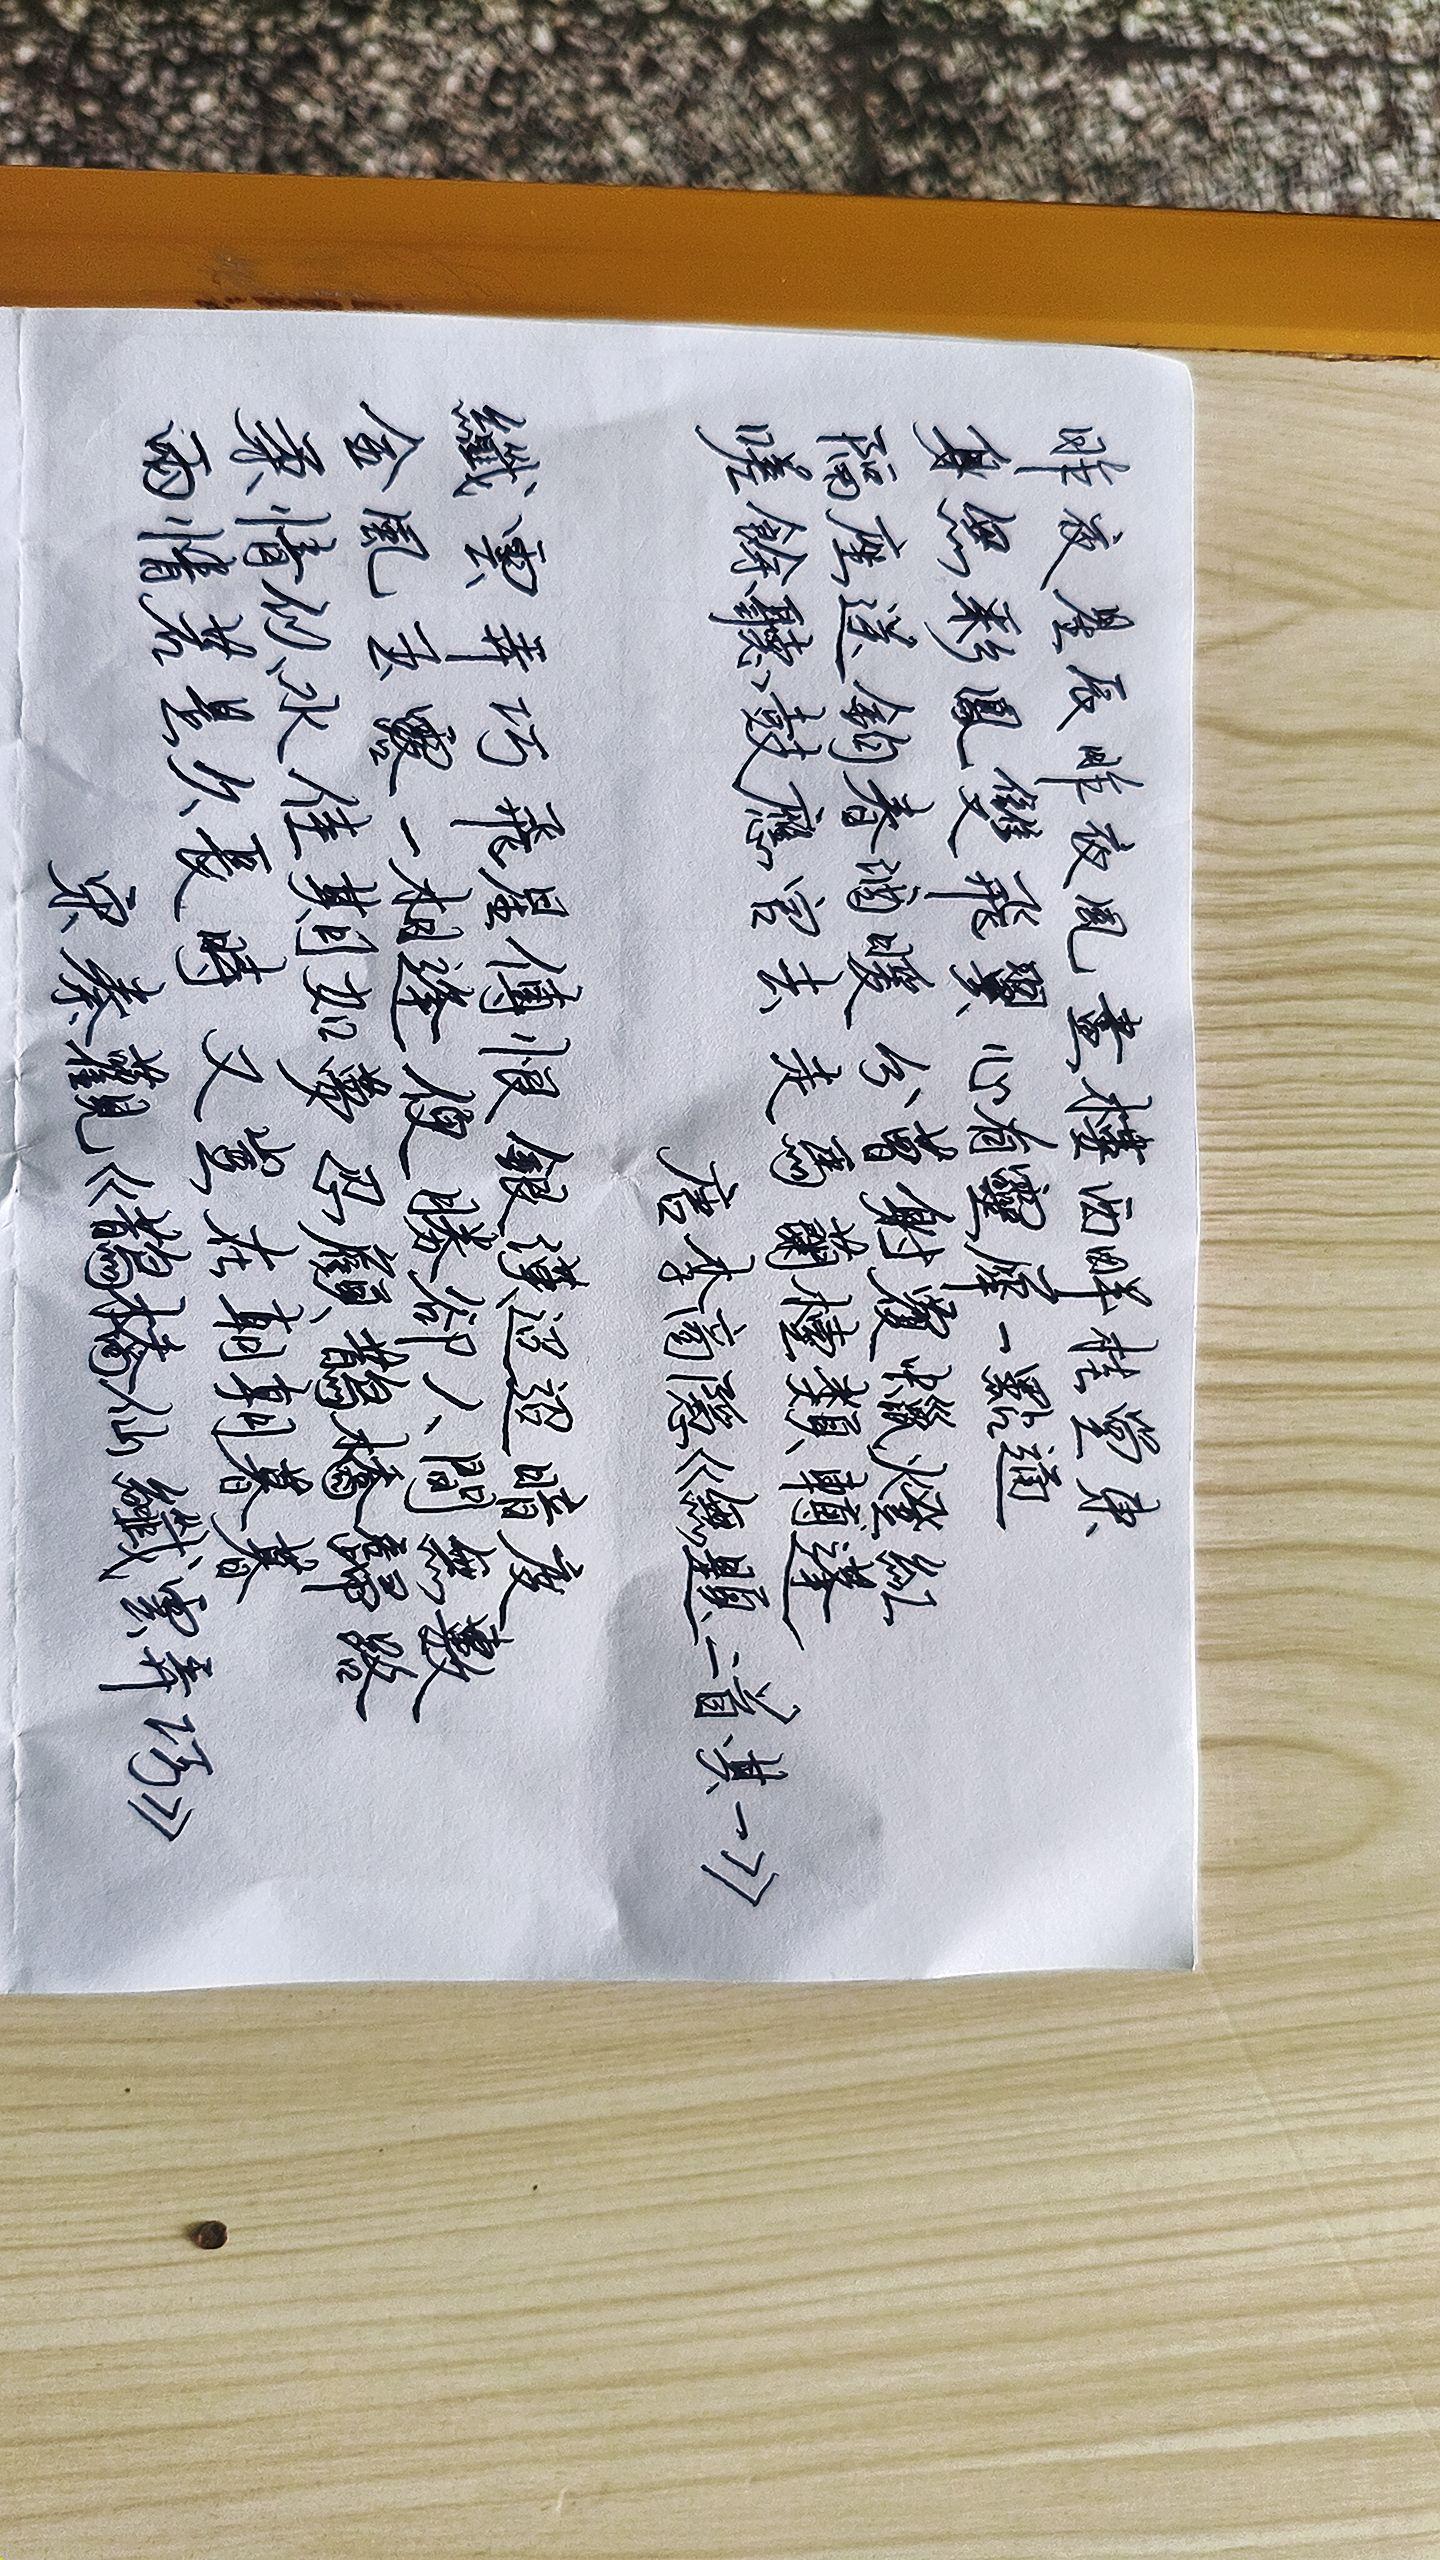 昨夜星辰昨夜風畫樓西畔桂堂東
身無彩鳳雙飛翼心有靈犀一點通
隔座送鉤春酒暖分曹射覆蠟燈紅
嗟餘聽鼓應官去走馬蘭檯類轉蓬
唐李商隱《無題二首其一》
纖雲弄巧飛星傳恨銀漢迢迢暗度
金風玉露一相逢便勝卻人間無數
柔情似水佳期如夢忍顧鵲橋歸路
兩情若是久長時又豈在朝朝暮暮
宋秦觀《鵲橋仙纖雲弄巧》